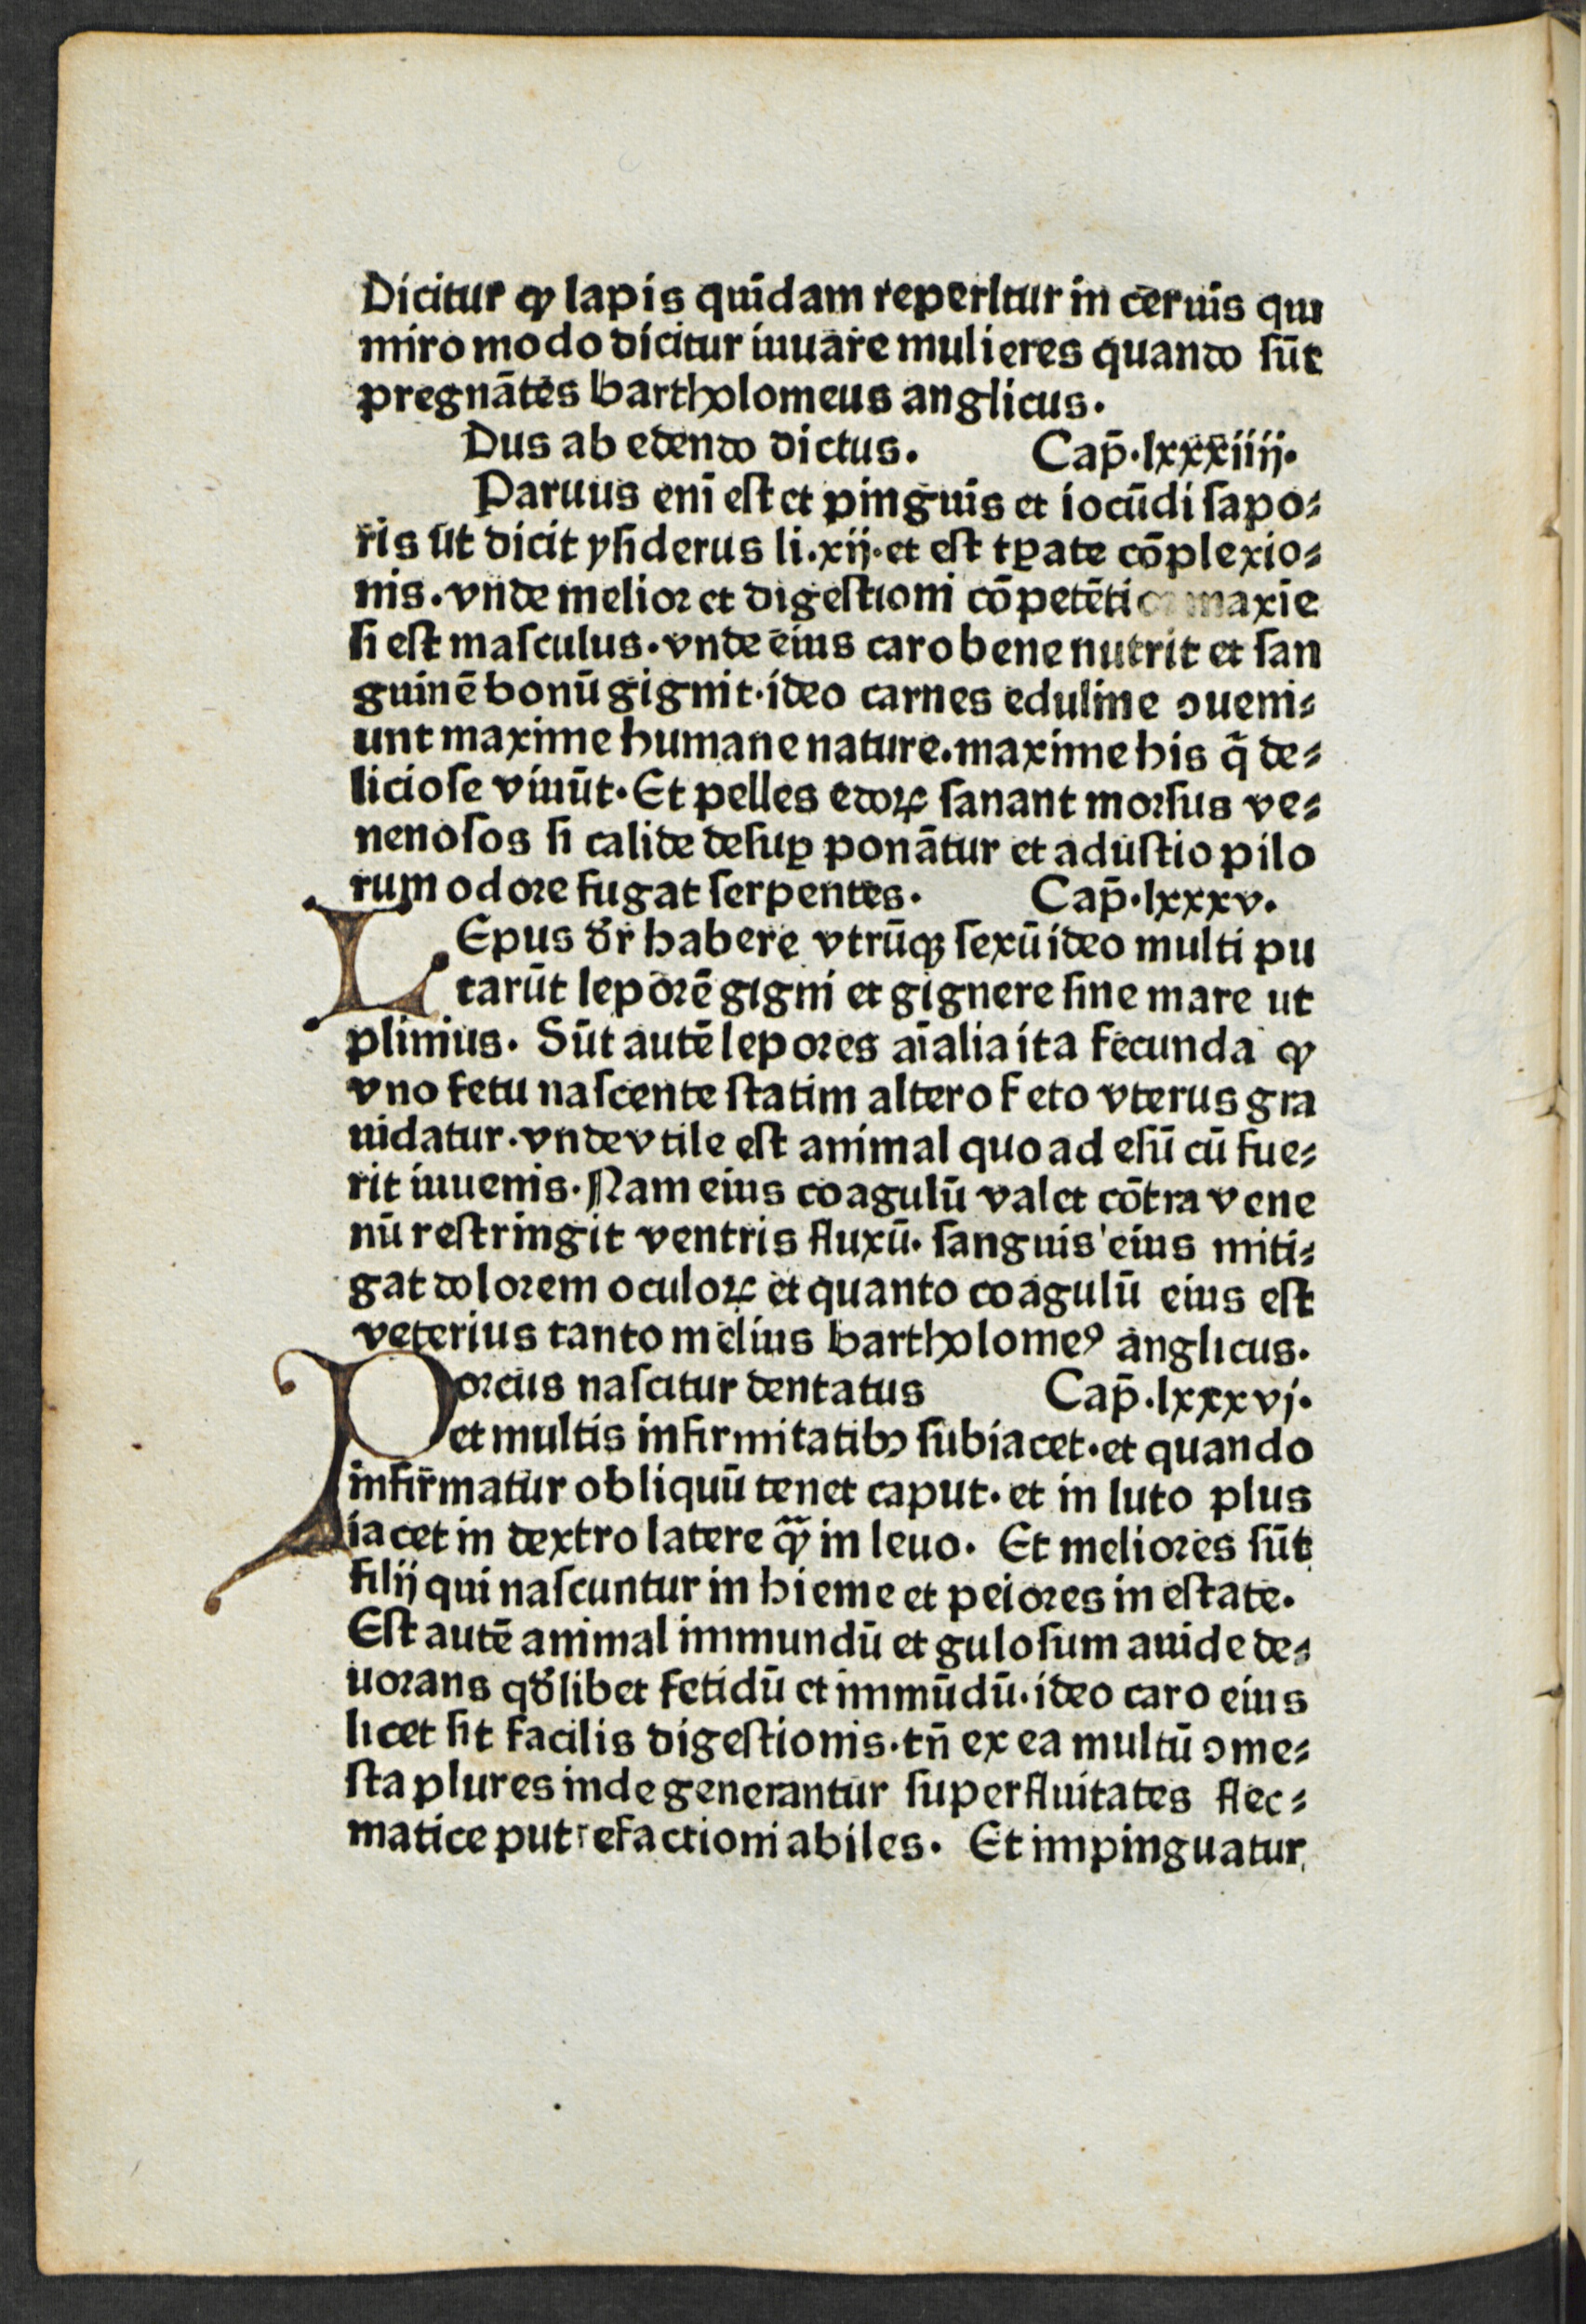 Dicitur ꝙ lapis quidam reperitur in ceruis qui
miro modo dicitur iuuare mulieres quando sūt
pregnātes bartholomeus anglicus.
Dus ab edendo dictus. Cap̄.lxxxiiij.
Paruus eni̅ est et pinguis et iocūdi sapo⸗
ris ut dicit ysiderus li.xij.et est tꝑate cōplexio⸗
nis.vnde melior et digestioni cōpetētior maxīe
si est masculus.vnde eius caro bene nutrit et san
guinē bonū gignit.ideo carnes eduline ꝯueni⸗
unt maxime humane nature.maxime his q̄ de⸗
liciose viuūt.Et pelles edoꝝ sanant morsus ve⸗
nenosos si calide desuꝑ ponātur et adustio pilo
rum odore fugat serpentes. Cap̄.lxxxv.
LEpus dr̄ habere vtrūqꝫ sexū ideo multi pu
tarūt leporē gigni et gignere sine mare ut
plinius. Sūt autē lepores aīalia ita fecunda ꝙ
vno fetu nascente statim altero feto vterus gra
uidatur.vnde vtile est animal quo ad esū cū fue⸗
rit iuuenis.Nam eius coagulū valet cōtra vene
nū restringit ventris fluxū.sanguis eius miti⸗
gat dolorem oculoꝝ et quanto coagulū eius est
veterius tanto melius bartholomeꝰ anglicus.
Porcus nascitur dentatus Cap̄.lxxxvj.
et multis infirmitatibꝫ subiacet.et quando
infirmatur obliquū tenet caput.et in luto plus
iacet in dextro latere ꝙ̄ in leuo. Et meliores sūt
filij qui nascuntur in hieme et peiores in estate.
Est autē animal immundū et gulosum auide de⸗
uorans qd̄libet fetidū et immūdū.ideo caro eius
licet sit facilis digestionis.tn̄ ex ea multū ꝯme⸗
sta plures inde generantur superfluitates flec⸗
matice putrefactioni abiles. Et impinguatur